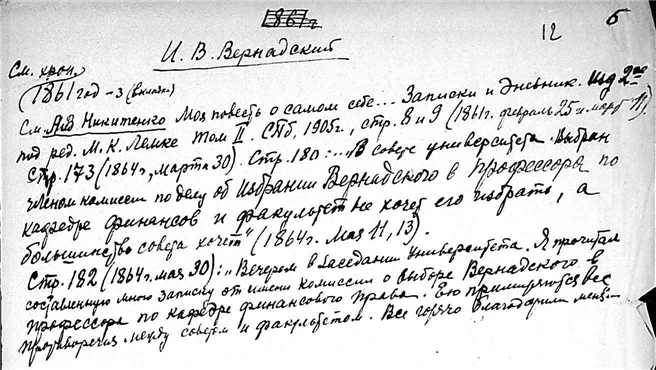 1861 г
12 б
И. В. Вернадский
См. хрон.
(1861 год - 3 (вклейк.)
См. Алд Никитенко Моя повесть о самом себе... Записки и Дневник. Изд 2ое
под ред. М. К. Лемке Том II. СПб, 1905 г., стр. 8 и 9 (1861 г. февраль 25 и март 11).
Стр. 173 (1864 г, марта 30). Стр. 180: ... „В совете университета. Выбран
членом комиссии по делу об избрании Вернадского в профессора по
кафедре финансов и факультет не хочет его избрать, а
большинство совета хочет" (1864 г. Мая 11, 13).
Стр. 182 (1864 г. мая 30): „Вечером в заседании Университета. Я прочитал
составленную мною записку от имени комиссии о выборе Вернадского в
профессора по кафедре финансового права. Ею примиряются все
противоречия между советом и факультетом. Все горячо благодарили меня...